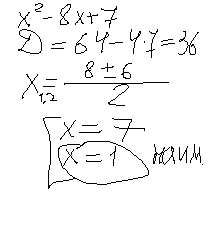 x² - 8x + 7
D = 64 - 4·7 = 36
x₁,₂ = (8 ± 6)/2
[x = 7
x = 1 наим